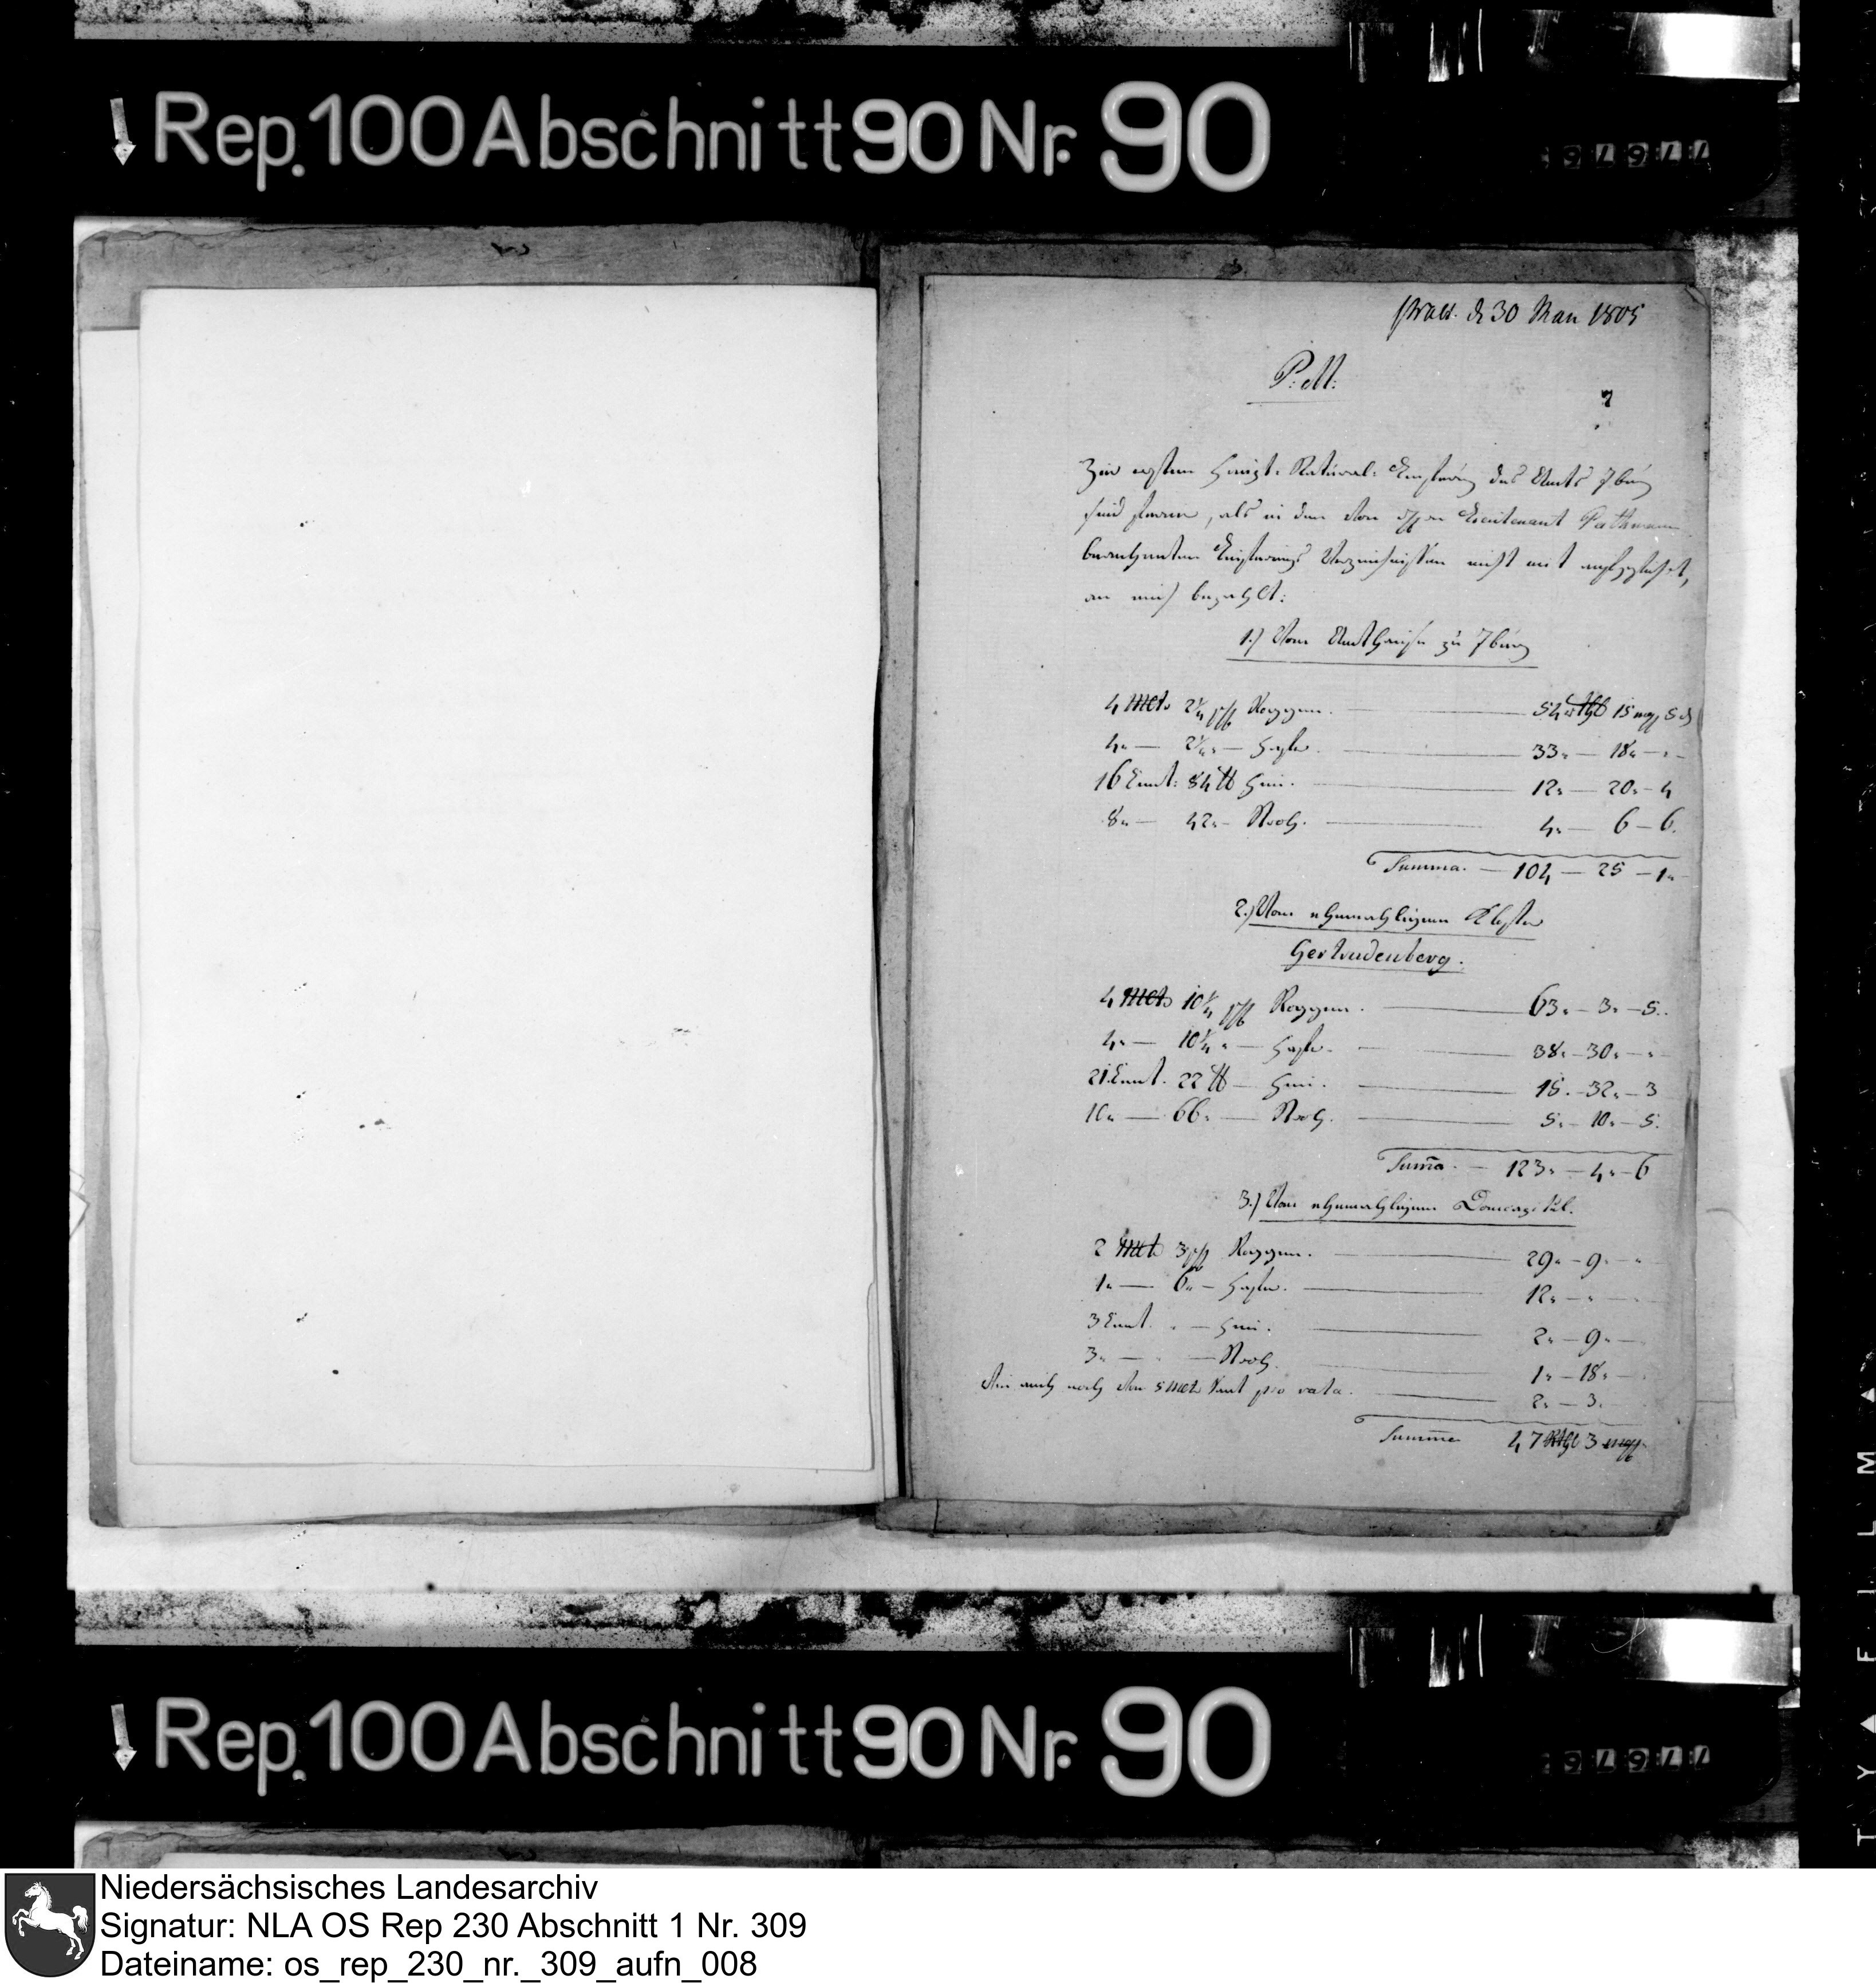 Rep. 100 Abschnitt 90 Nr. 90
praes. d 30 May 1805
P. M.
7
Zur ersten Haupt-Natural-Lieferung des Amts Iburg
sind ferner, als in den von Herrn Lieutenant Pathmann
Lieferungs Verzeichnissen nicht mit aufgeführt,
an mich bezahlt:
1.) Vom Amthause zu Iburg
4 Mlt. 2¼ schfl Roggen. — 54 Rthl 15 mgl 5 d
4 " — 2¼ " — Hafer. — 33 " — 18 " — " —
16 Cent: 84 ℔ Heu. — 12 " — 20 " — 4
8 " — 42 " — Stroh. — 4 " — 6 — 6.
Summa. — 104 — 25 — 1 "
2.) Vom ehemahligen Kloster
Gertrudenberg.
4 Mlt. 10¼ schfl Roggen. — 63 " — 3 " — 5.
4 " — 10¼ " — Hafer. — 38 " — 30 " — "
21 Cent. 22 ℔ — Heu. — 15. — 32 " — 3
10 " — 66 " — Stroh. — 5 " — 10 " — 5.
Suma. — 123 " — 4 " — 6
3.) Vom ehemahligen Domcapitul.
2 Mlt 3 schfl Roggen. — 29 " — 9 " — "
1 " — 6 " — Hafer. — 12 " — " —
3 Cent. " — Heu. — 2 " — 9 " —
3 " — " — Stroh. — 1 " — 18 " —
auch noch 5 Mlt pro rata. — 2 " — 3.
Summe 47 Rthl 3 mgl
Rep. 100 Abschnitt 90 Nr. 90
Niedersächsisches Landesarchiv
Signatur: NLA OS Rep 230 Abschnitt 1 Nr. 309
Dateiname: os_rep_230_nr._309_aufn_008